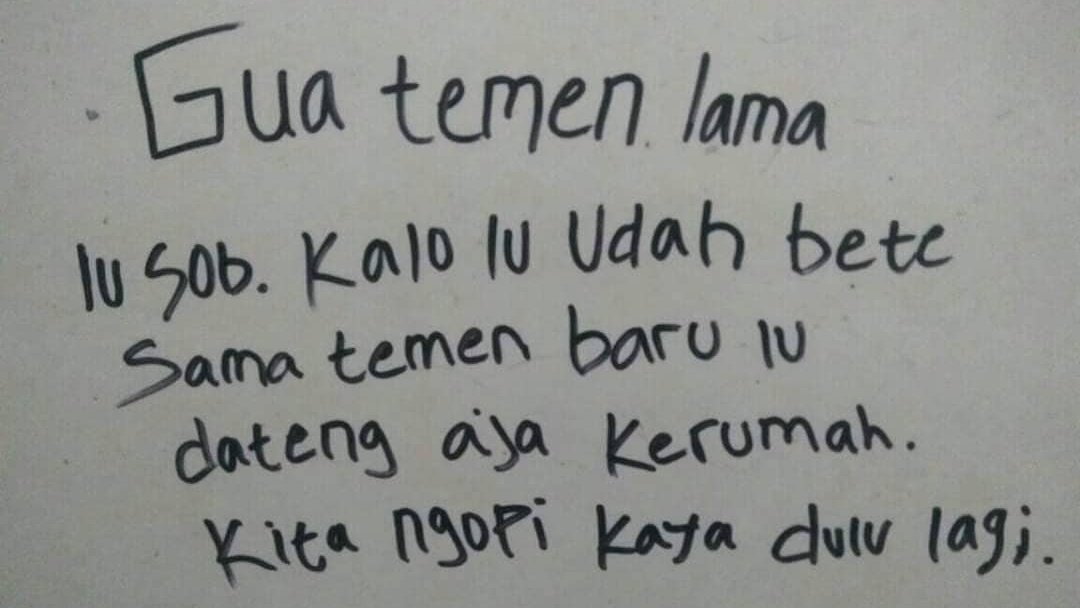 Gua temen lama
lu sob. Kalo lu Udah bete
Sama temen baru lu
dateng aja Kerumah.
Kita ngopi kaya dulu lagi.